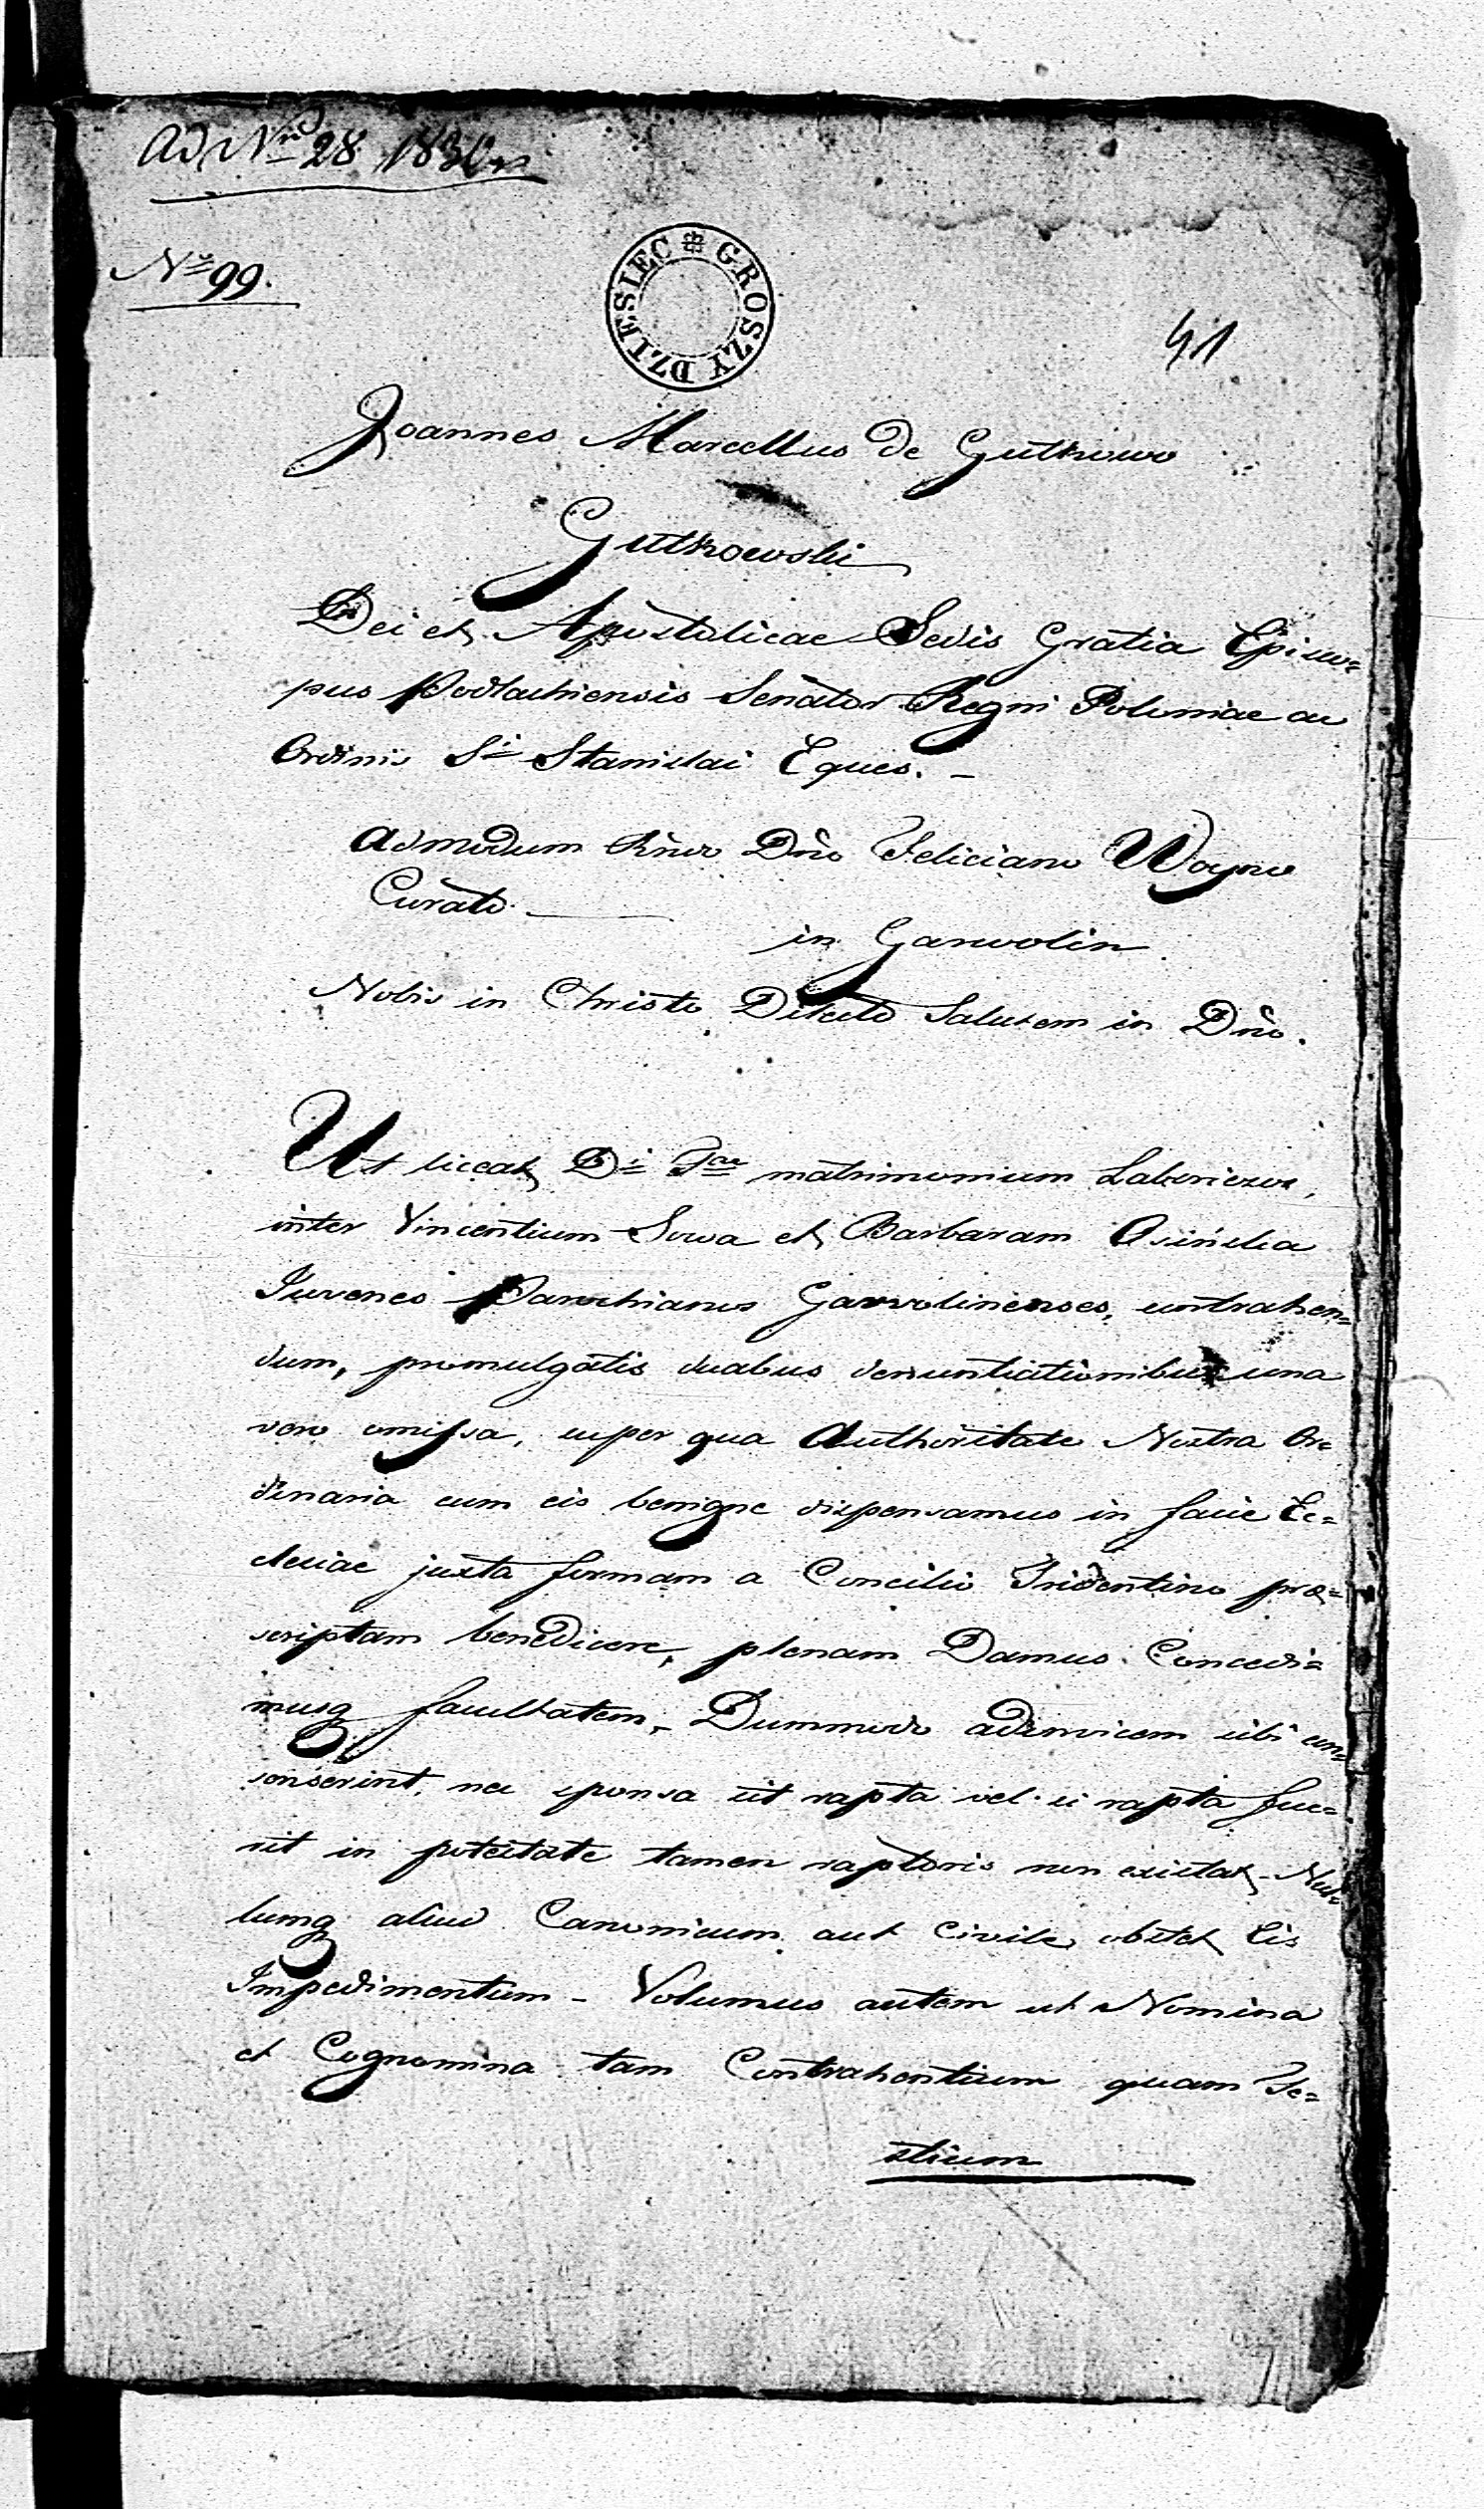 Ad Nrũ 28 1830
No 99.
DZIESIĘC GROSZY
41
Joannes Marcellus de Gutkowo
Gutkowski
Dei et Apostolicae Sedis Gratia Episco=
pus Podlachiensis Senator Regni Poloniae ac
Ordinis Sti Stanislai Eques. –
Admodum Rndo Dño Feliciano Woyno
Curato.
in Garwolin
Nobis in Christo Dilecto Salutem in Dño.
Ut liceat Di Tae matrimonium
inter Vincentium Sowa et Barbaram Osińska
Juvenes Parochianos Garwolinenses, contrahen=
dum, promulgatis duabus denuntiationibus una
vero omissa, super qua Authoritate Nostra Or=
dinaria cum eis benigne dispensamus in facie Ec=
clesiae juxta formam a Concilio Tridentino præ=
scriptam benedicere, plenam Damus. Concedi=
musq facultatem, Dummodo adinvicem sibi con=
senserint, nec sponsa sit rapta vel si rapta fue=
rit in potestate tamen raptoris non existat – Nul=
lumq aliud Canonicum aut Civile obstet Eis
Impedimentum – Volumus autem ut Nomina
et Cognomina tam Contrahentium quam Te=
stium